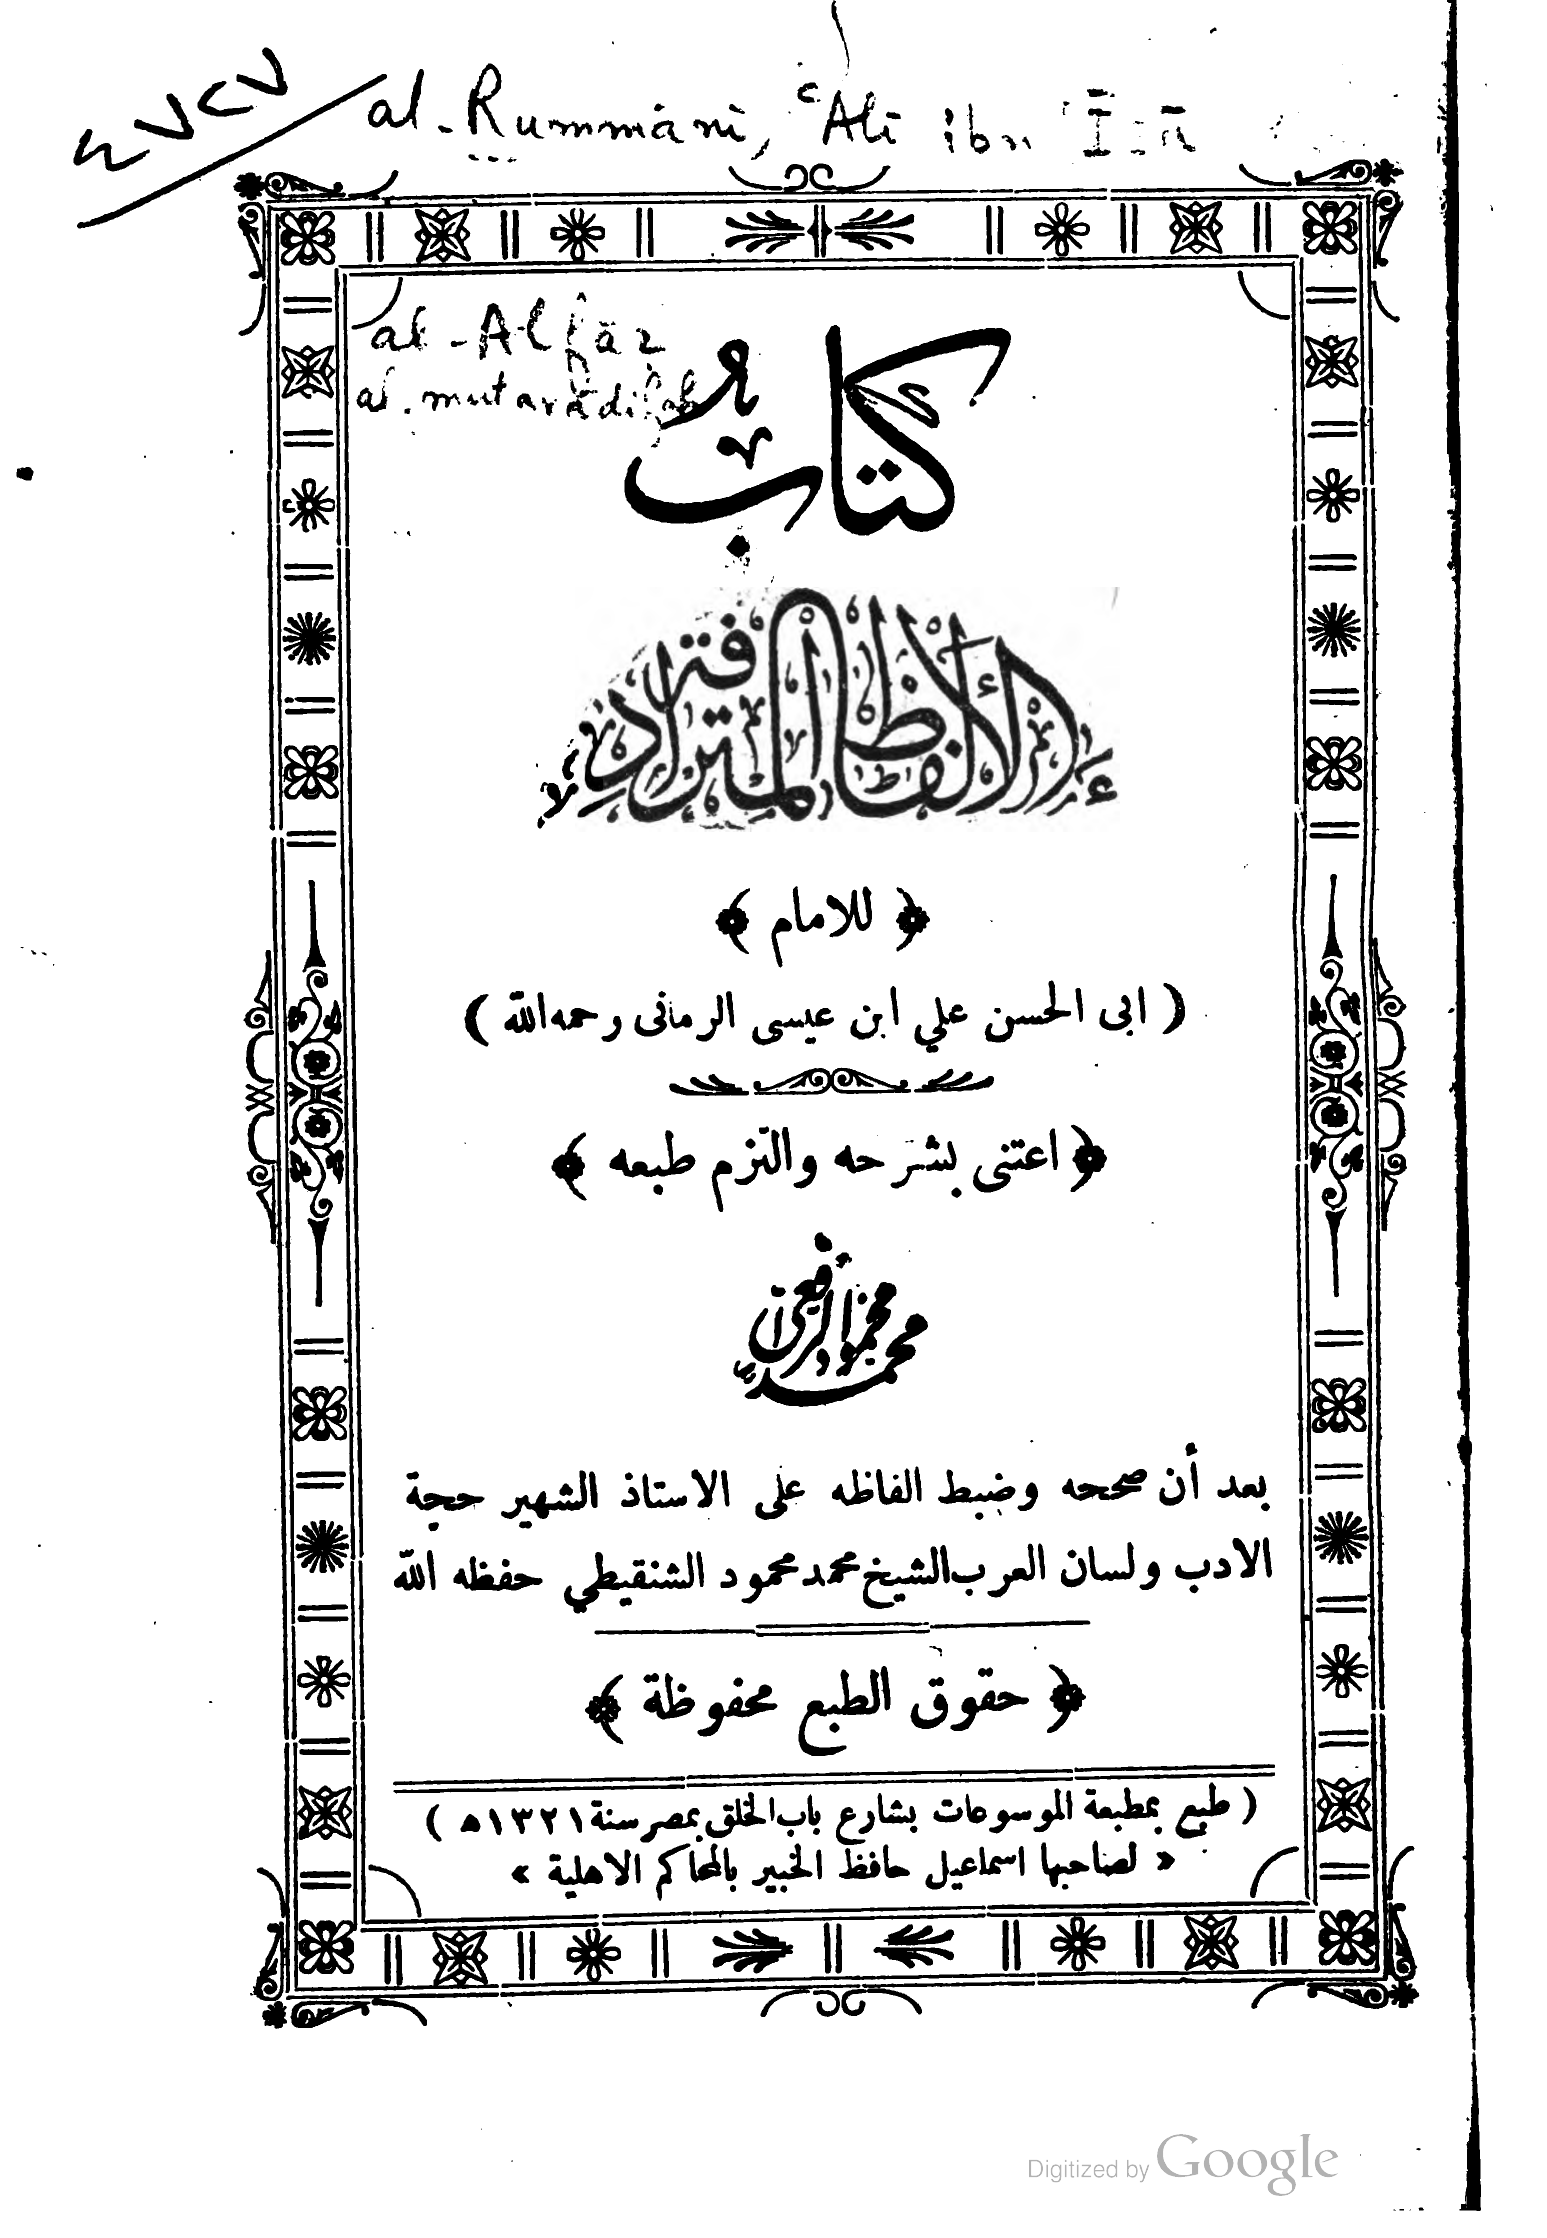 al-Rummānī, ʿAlī ibn ʿĪsā
al-Alfāẓ
al-mutarādifah
كتاب
الألفاظ المترادفة
﴿ للامام ﴾
( ابى الحسن علي ابن عيسى الرمانى رحمه الله )
﴿ اعتنى بشرحه والتزم طبعه ﴾
محمد محمود الرافعي
بعد أن صححه وضبط الفاظه على الاستاذ الشهير حجة
الادب ولسان العرب الشيخ محمد محمود الشنقيطي حفظه الله
﴿ حقوق الطبع محفوظة ﴾
( طبع بمطبعة الموسوعات بشارع باب الخلق بمصر سنة ١٣٢١ه )
« لصاحبها اسماعيل حافظ الخبير بالمحاكم الاهلية »
Digitized by Google